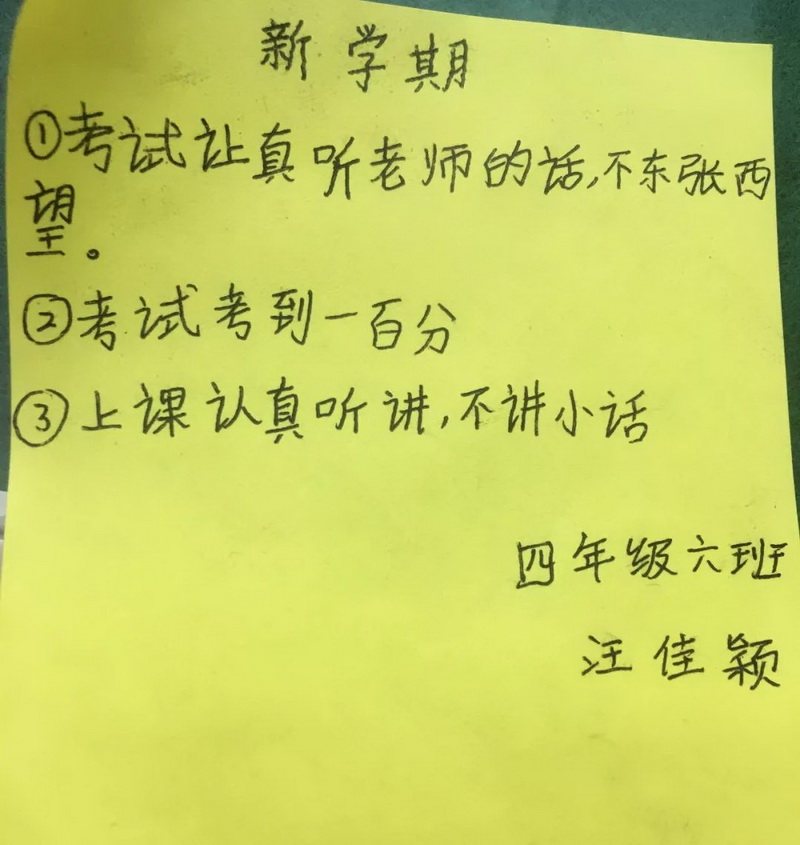 新学期
①考试让真听老师的话,不东张西
望。
②考试考到一百分
③上课认真听讲,不讲小话
四年级六班
汪佳颖